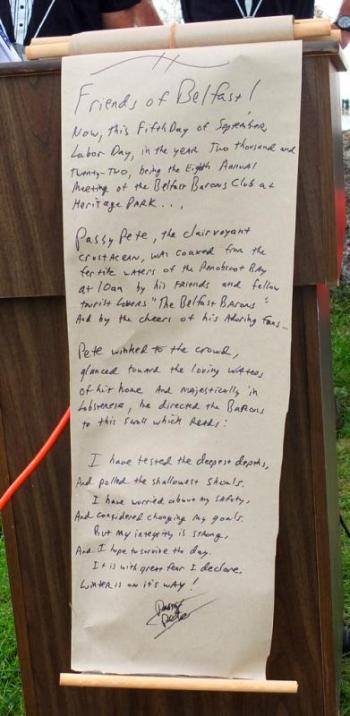 Friends of Belfast!
Now, this Fifth Day of September,
Labor Day, in the year Two thousand and
Twenty-Two, being the Eighth Annual
Meeting of the Belfast Barons Club at
Heritage PARK....
Passy Pete, the clairvoyant
crustacean, was coaxed from the
fertile waters of the Penobscot Bay
at 10am by his Friends and fellow
tourist Lovers "The Belfast Barons"
And by the cheers of his Adoring Fans...
Pete winked to the crowd,
glanced toward the loving waters
of his home And majestically in
Lobsterese, he directed the Barons
to this scroll which Reads:
I have tested the deepest depths,
And polled the shallowest shoals.
I have worried about my safety,
And considered changing my goals.
But my integrity is strong,
And I hope to survive the day.
It is with great fear I declare.
Winter is on it's way!
Passy
Pete